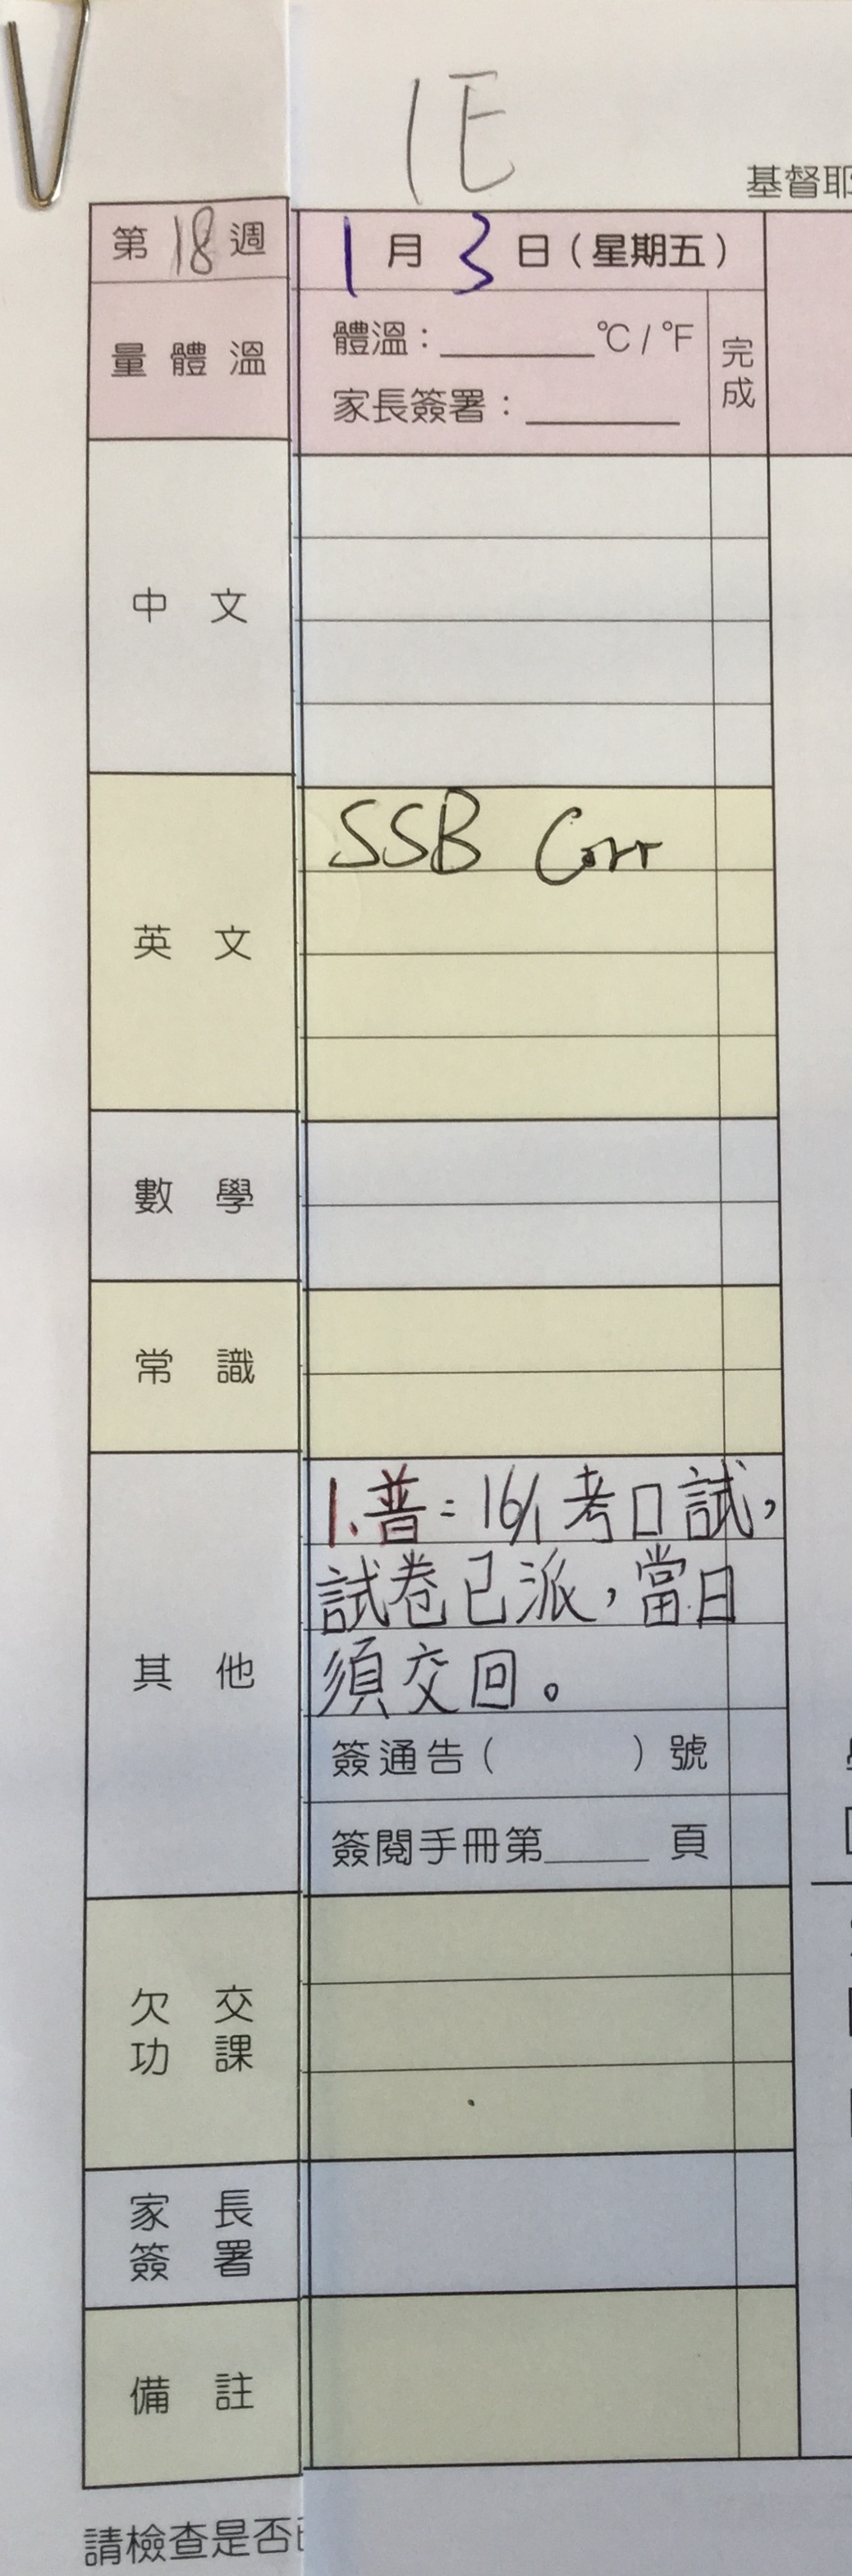 1E
基督耶
第18週
1月3日(星期五)
量體溫
體溫:______°C/°F
家長簽署:______
完成
中文
英文
SSB Corr
數學
常識
其他
1.普=16/1考口試,
試卷已派,當日
須交回。
簽通告( )號
簽閱手冊第____頁
欠交
功課
家長
簽署
備註
請檢查是否